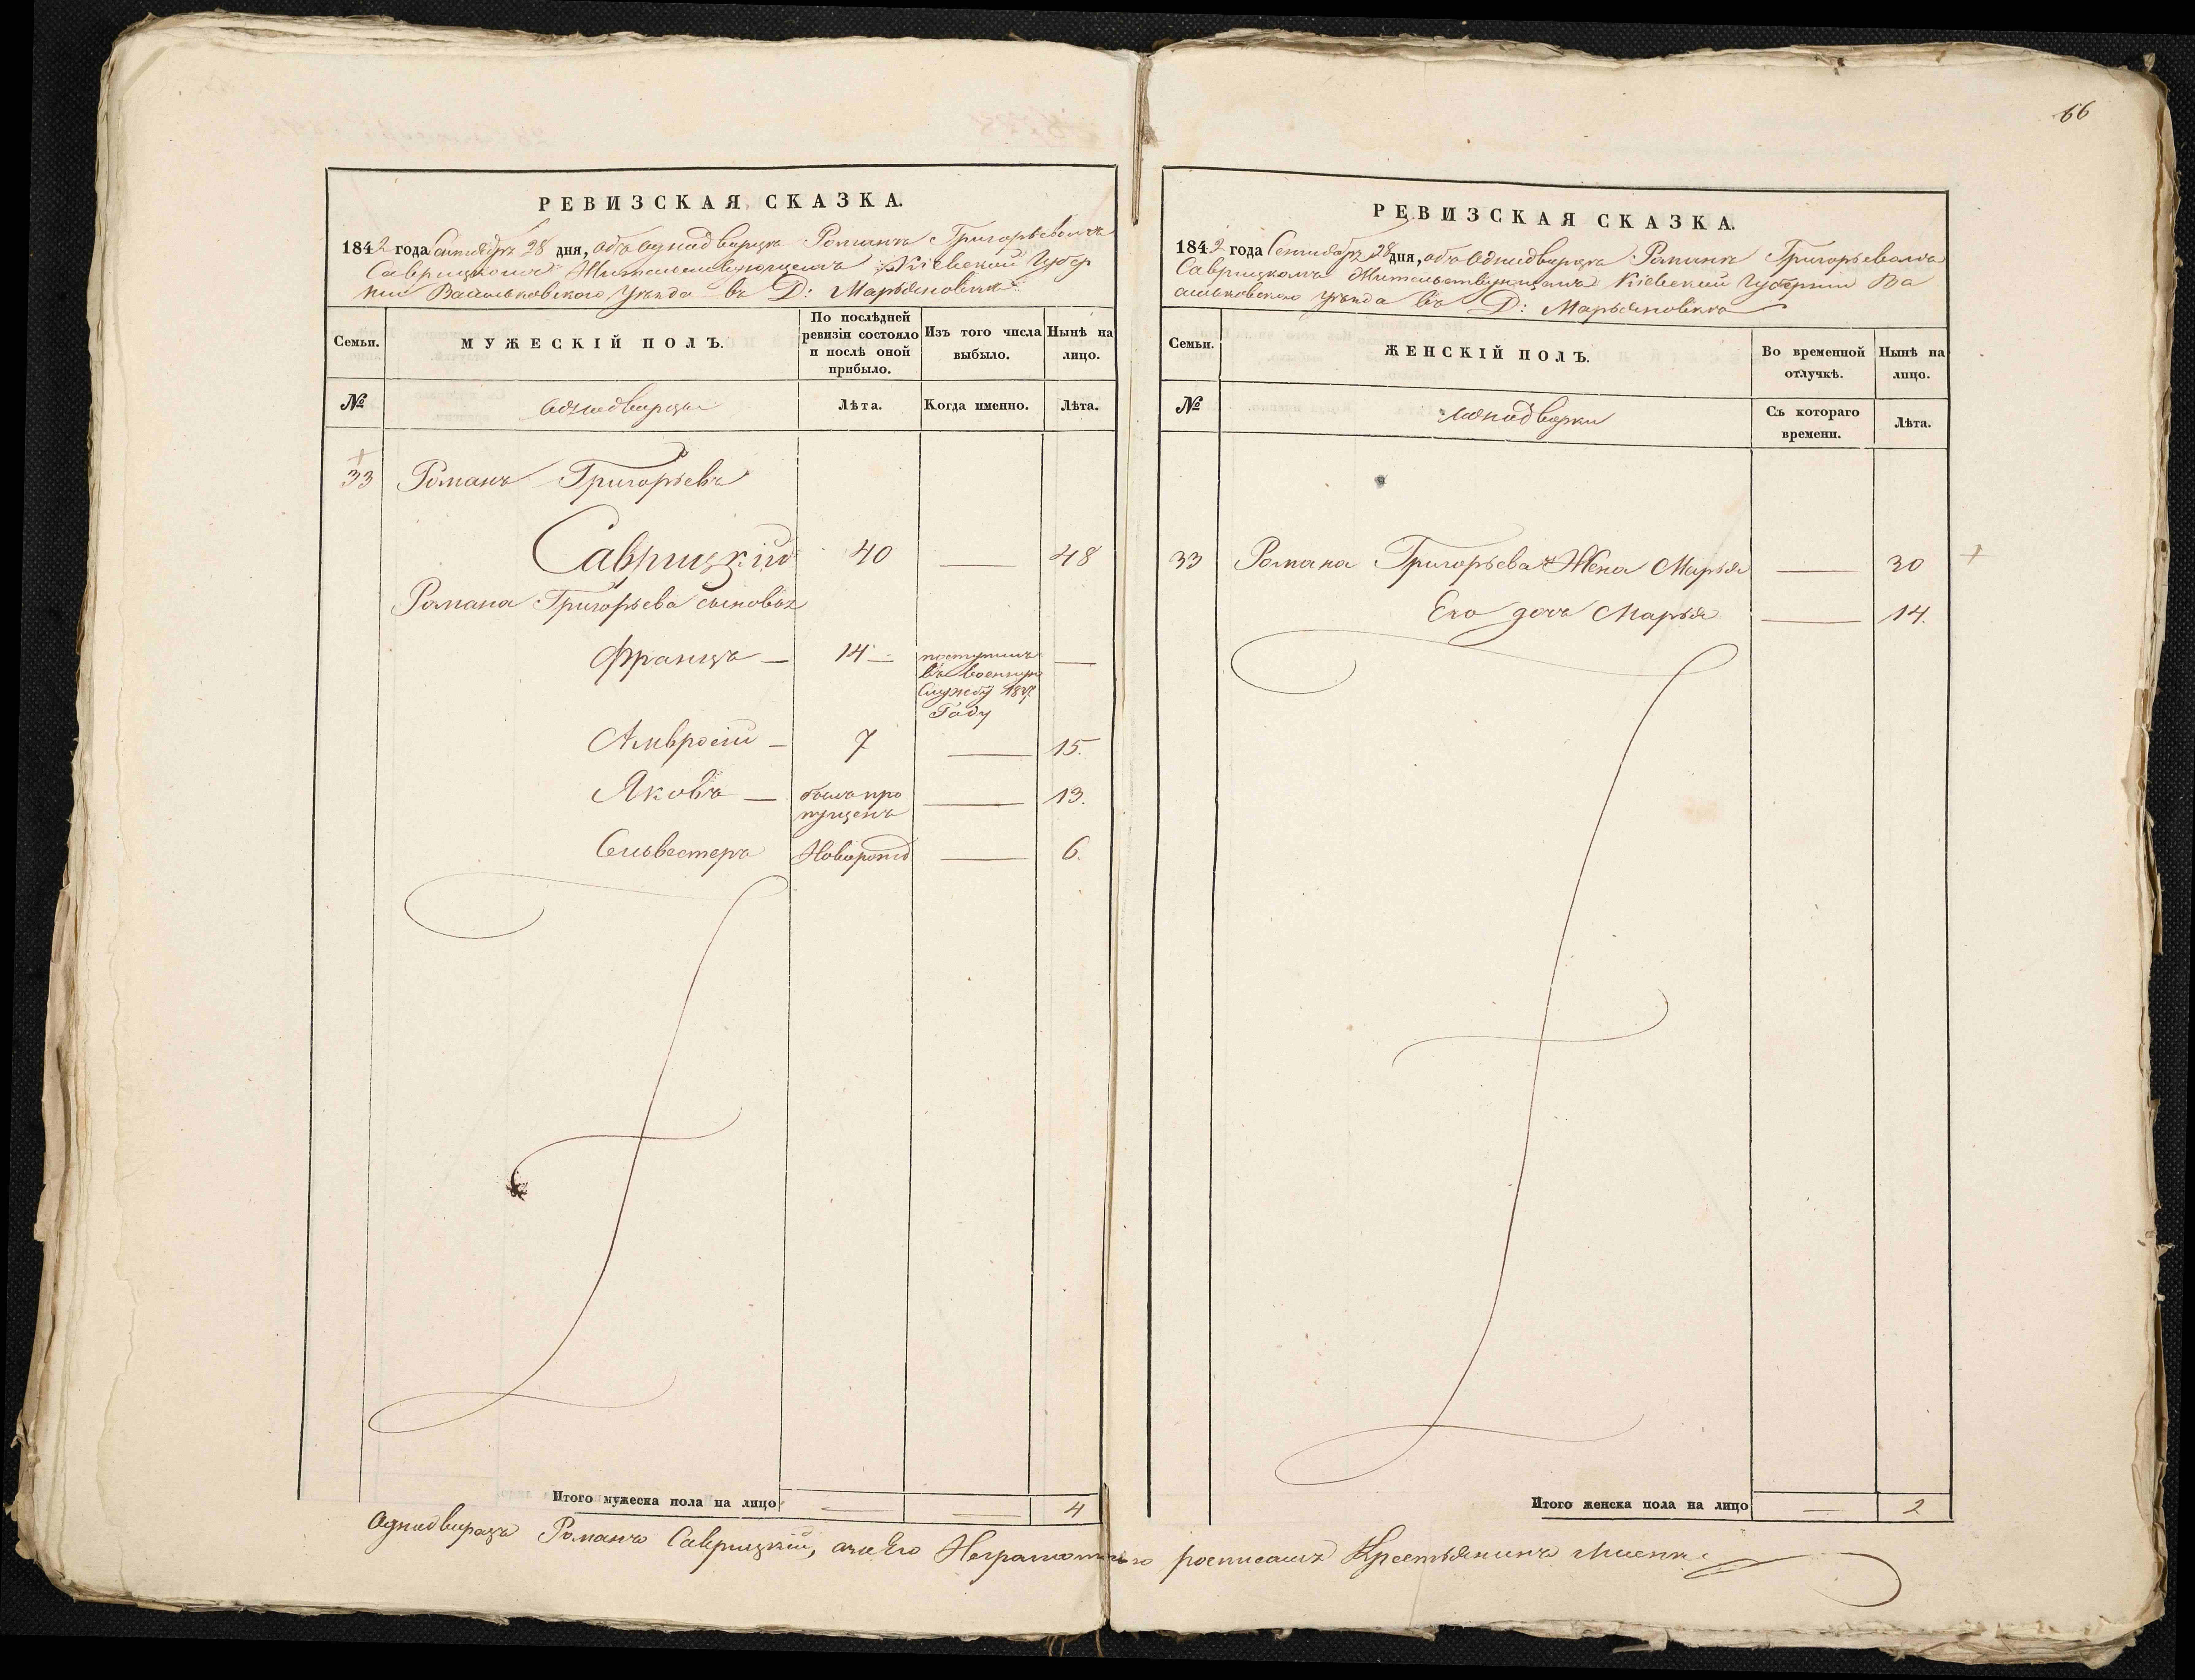 66
РЕВИЗСКАЯ СКАЗКА.
1842 года Сентября 28 дня, объ однодворцѣ Романѣ Григорьевомъ
Саврицкомъ Жительствующемъ Кіевской Губер
ніи Васильковского уѣзда въ Д: Марьяновкѣ
Семьи.
МУЖЕСКІЙ ПОЛЪ.
По послѣдней ревизіи состояло и послѣ оной прибыло.
Изъ того числа выбыло.
Нынѣ на лицо.
№
однодворцы
Лѣта.
Когда именно.
Лѣта.
33 Романъ Григорьевъ
Саврицкій 40 — 48
Романа Григорьева сыновья
Францъ — 14 — поступилъ —
въ военную
Службу
Году
Амвросій — 7 — 15.
Яковъ — былъ про — 13.
пущенъ
Сельвестеръ Новорожд — 6.
Итого мужеска пола на лицо — — 4
РЕВИЗСКАЯ СКАЗКА.
1842 года Сентября 28 дня, объ однодворцѣ Романѣ Григорьевомъ
Саврицкомъ Жительствующемъ Кіевской Губерніи Ва
сильковского уѣзда въ Д: Марьяновкѣ
Семьи.
ЖЕНСКІЙ ПОЛЪ.
Во временной отлучкѣ.
Нынѣ на лицо.
№
однодворки
Съ котораго времени.
Лѣта.
33 Романа Григорьева Жена Марья — 30 +
Его дочь Марья — 14.
Итого женска пола на лицо — 2
Однодворецъ Романъ Саврицкій, а за Его Неграмотного росписался Крестьянинъ